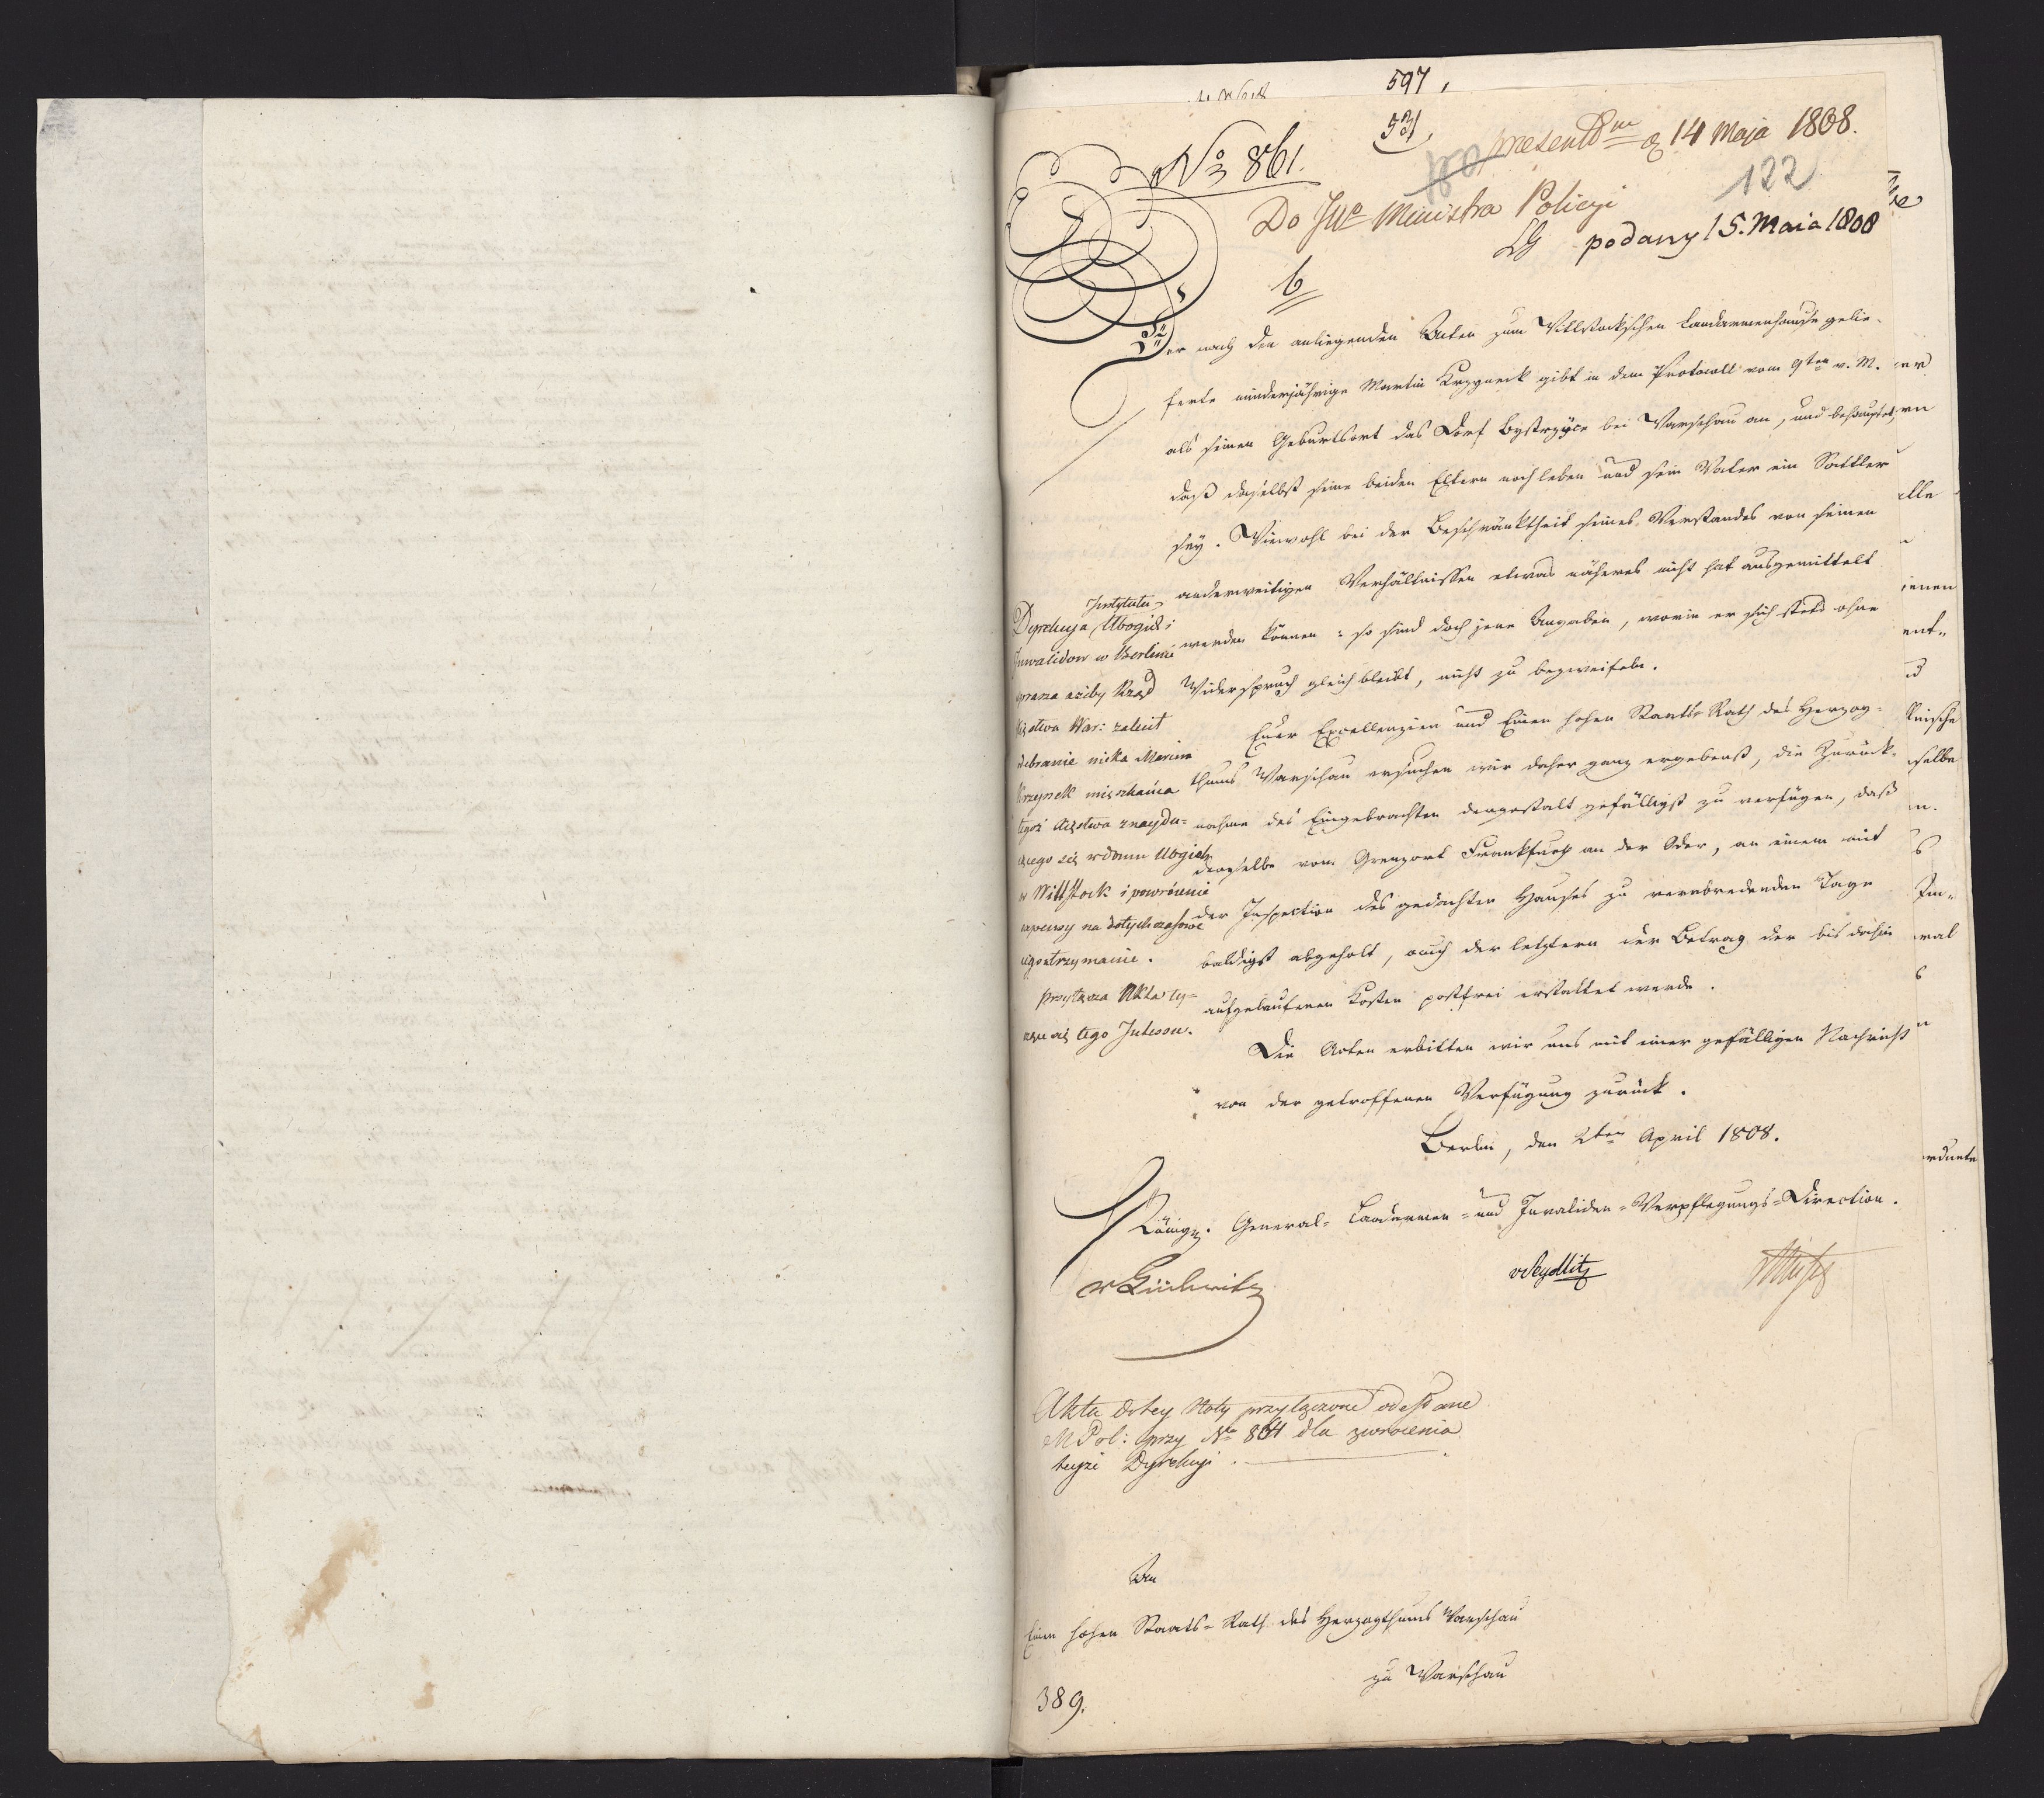 597.
531.
No 861.
præsentm d 14 Maja 1808.
122
Do JW Ministra Policyi
podany 15. Maia 1808
6
Der nach den anliegenden Acten zum Wittstockschen Landarmenhause gelie-
ferte minderjährige Martin Krzyneck gibt in dem Protocoll vom 9ten v. M.
als seinen Geburtsort das Dorf Bystrzyce bei Warschau an, und behauptet,
daß daselbst seine beiden Eltern noch leben und sein Vater ein Sattler
sey. Wiewohl bei der Beschränktheit seines Verstandes von seinen
anderweitigen Verhältnissen etwas näheres nicht hat ausgemittelt
werden können: so sind doch jene Angaben, worin er sich stets ohne
Widerspruch gleich bleibt, nicht zu bezweifeln.
Euer Excellenzien und Einen hohen Staats-Rath des Herzog-
thums Warschau ersuchen wir daher ganz ergebenst, die Zurück-
nahme des Eingebrachten dergestalt gefälligst zu verfügen, daß
derselbe vom Grenzort Frankfurth an der Oder, an einem mit
der Inspection des gedachten Hauses zu verabredenden Tage
baldigst abgeholt, auch der letztern der Betrag der bis dahin
aufgelaufenen Kosten postfrei erstattet werde.
Die Acten erbitten wir uns mit einer gefälligen Nachricht
von der getroffenen Verfügung zurück.
Berlin, den 2ten April 1808.
Königl. General-Landarmen- und Invaliden-Verpflegungs-Direction.
vSeydlitz
Instytutu
Dyrekcya Ubogich i
Inwalidow w Berlinie
uprasza azeby Rząd
Xięstwa War: zalecił
odebranie nieka Marcina
Krzynek mieszkańca
tegoż Xięstwa znaydu=
iącego się w domu Ubogich
w Wittstock i powrócenie
expensy na dotychczasowe
iego utrzymanie.
przyłącza Akta ty=
czące się tego Interesu.
Akta do tey Noty przyłączone odesłane
M Pol: przy No 861 dla zwrócenia
teyże Dyrekcyi.
An
Einen hohen Staats-Rath des Herzogthums Warschau
zu Warschau
389.